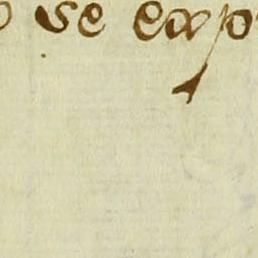 se exp